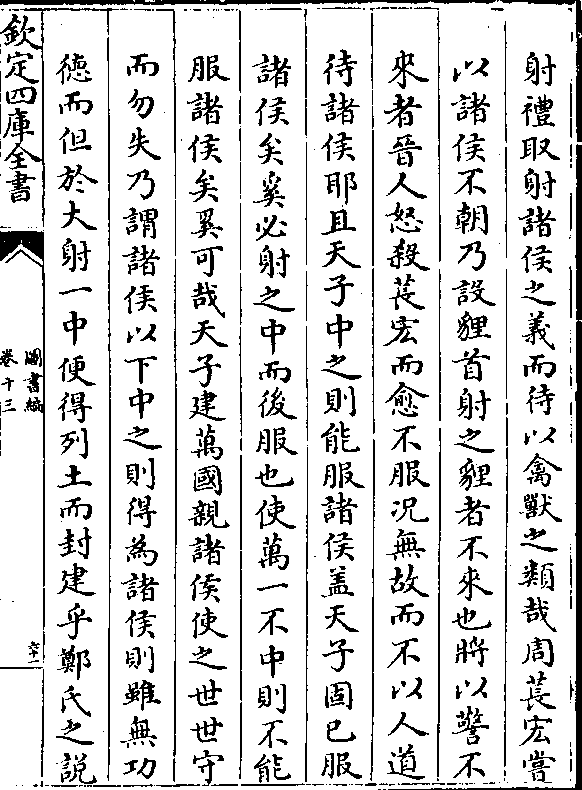 射禮取射諸侯之義而待以禽獸之類哉周萇宏嘗
以諸侯不朝乃設貍首射之貍者不來也將以警不
來者晉人怒殺萇宏而愈不服况無故而不以人道
待諸侯耶且天子中之則能服諸侯盖天子固已服
諸侯矣奚必射之中而後服也使萬一不中則不能
服諸侯矣奚可哉天子建萬國親諸侯使之世世守
而勿失乃謂諸侯以下中之則得為諸侯則雖無功
徳而但於大射一中便得列土而封建乎鄭氏之說
欽定四庫全書
圖書編
卷十三
六十一